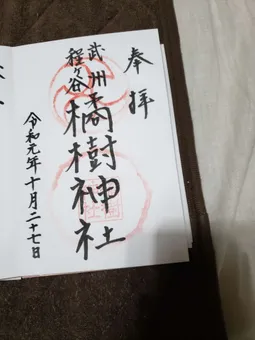 奉拝
武州
程ヶ谷
橘樹神社
令和元年十月二十七日